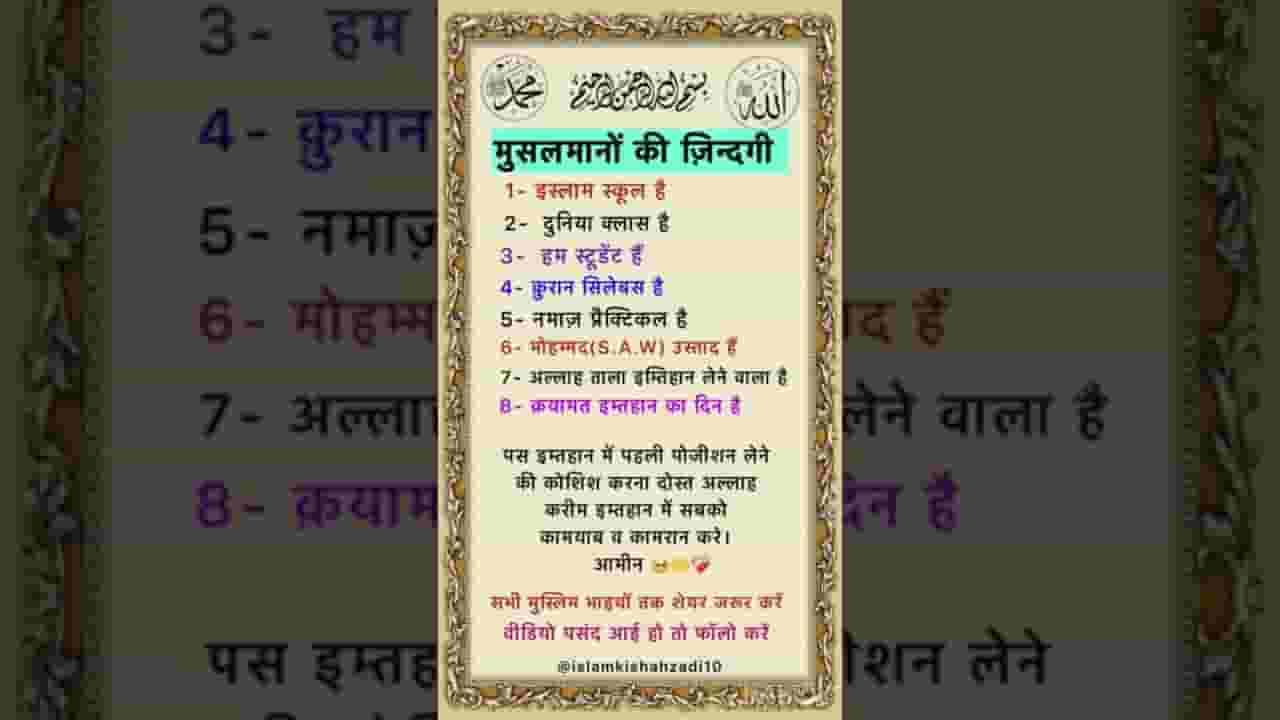 محمد بسم الله الرحمن الرحيم الله
मुसलमानों की ज़िन्दगी
1- इस्लाम स्कूल है
2- दुनिया क्लास है
3- हम स्टूडेंट हैं
4- क़ुरान सिलेबस है
5- नमाज़ प्रैक्टिकल है
6- मोहम्मद(S.A.W) उस्ताद हैं
7- अल्लाह ताला इम्तिहान लेने वाला है
8- क़यामत इम्तहान का दिन है
पस इम्तहान में पहली पोजीशन लेने
की कोशिश करना दोस्त अल्लाह
करीम इम्तहान में सबको
कामयाब व कामरान करे।
आमीन 🥹🤲❤️‍🩹
सभी मुस्लिम भाइयों तक शेयर जरूर करें
वीडियो पसंद आई हो तो फॉलो करें
@islamkishahzadi10
3- हम
4- क़ुरान
5- नमाज़
6- मोहम्म
7- अल्लाह
8- क़याम
पस इम्तह
ाद हैं
लेने वाला है
दिन है
ीशन लेने